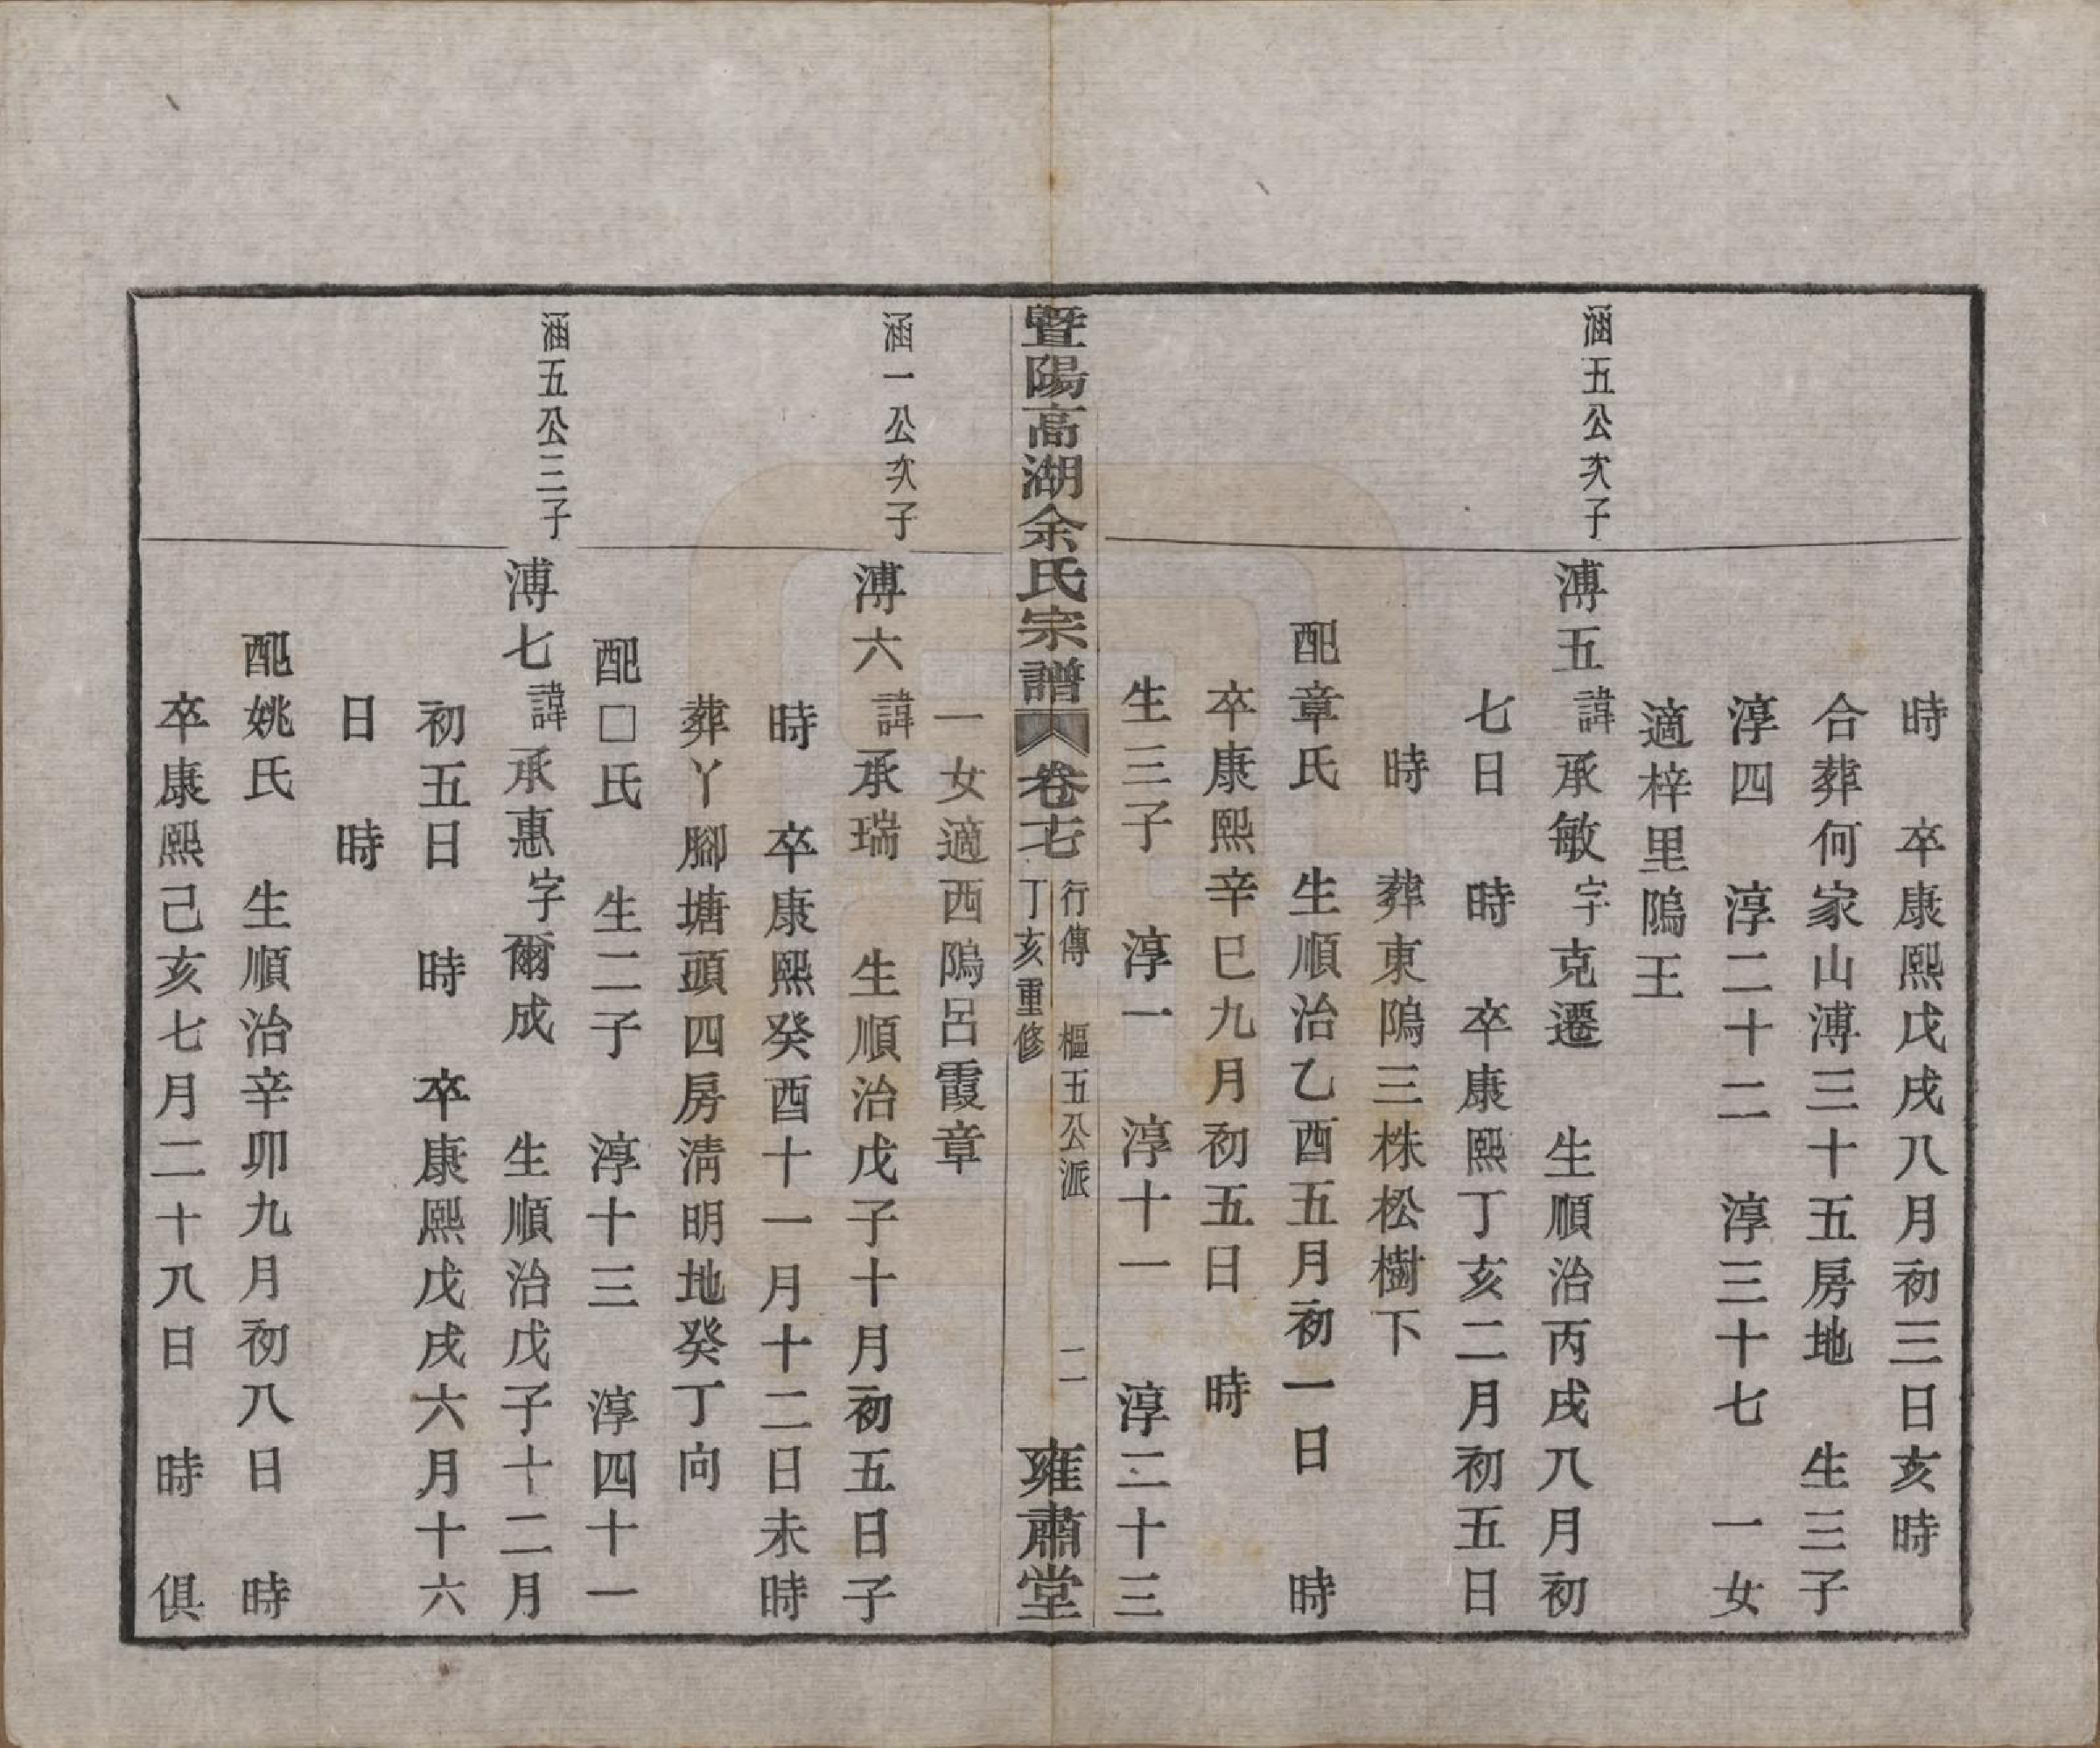 時　卒康熙戊戌八月初三日亥時
合葬何家山溥三十五房地　生三子
淳四　淳二十二　淳三十七　一女
適梓里隖王
涵五公次子
溥五諱承敏字克遷　生順治丙戌八月初
七日　時　卒康熙丁亥二月初五日
時　葬東隖三株松樹下
配章氏　生順治乙酉五月初一日　時
卒康熙辛巳九月初五日　時
生三子　淳一　淳十一　淳二十三
暨陽高湖余氏宗譜 卷七 行傳　樞五公派　二
丁亥重修
雍肅堂
一女適西隖呂霞章
涵一公次子
溥六諱承瑞　生順治戊子十月初五日子
時　卒康熙癸酉十一月十二日未時
葬丫腳塘頭四房淸明地癸丁向
配□氏　生二子　淳十三　淳四十一
涵五公三子
溥七諱承惠字爾成　生順治戊子十二月
初五日　時　卒康熙戊戌六月十六
日　時
配姚氏　生順治辛卯九月初八日　時
卒康熙己亥七月二十八日　時　俱